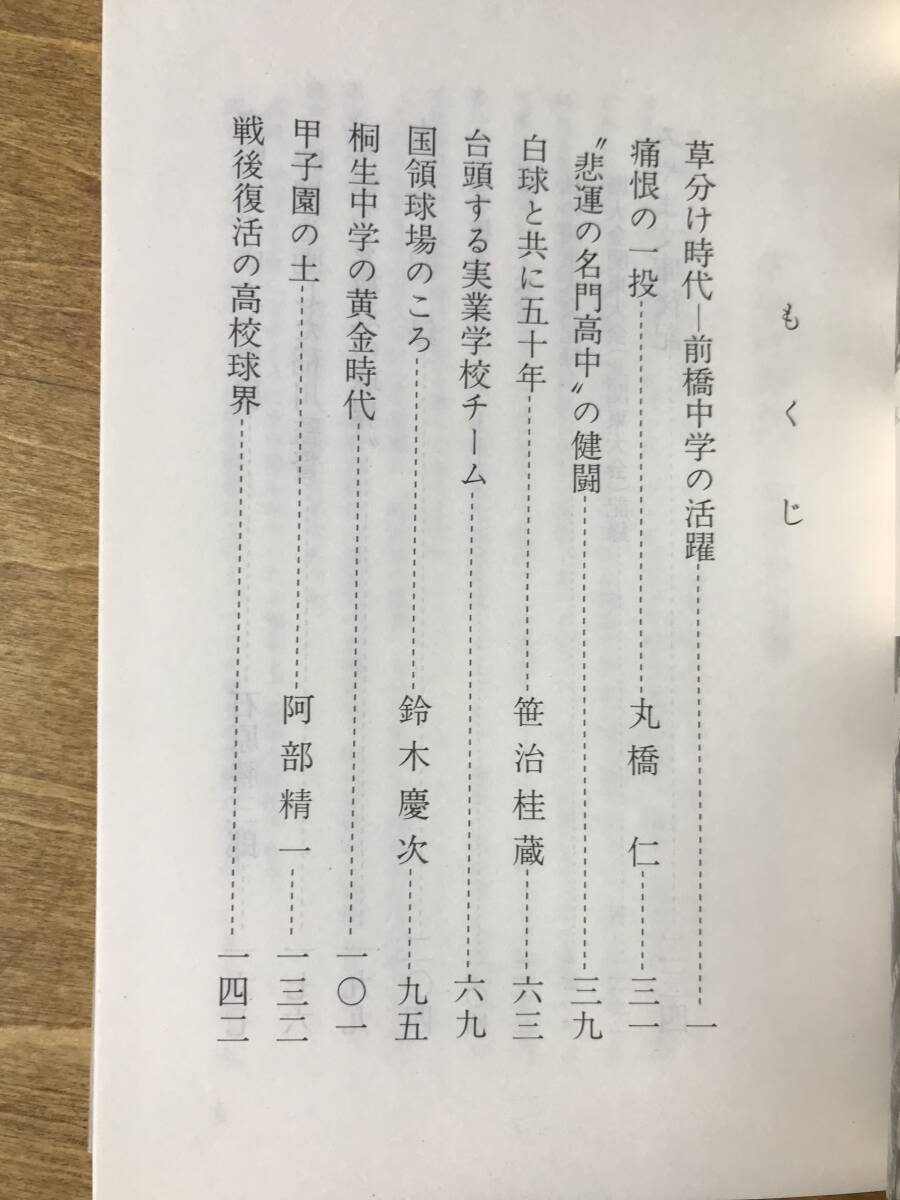 もくじ
草分け時代―前橋中学の活躍……一
痛恨の一投……丸橋　仁……三一
〝悲運の名門高中〟の健闘……三九
白球と共に五十年……笹治桂蔵……六三
台頭する実業学校チーム……六九
国領球場のころ……鈴木慶次……九五
桐生中学の黄金時代……一〇一
甲子園の土……阿部精一……一三二
戦後復活の高校球界……一四二